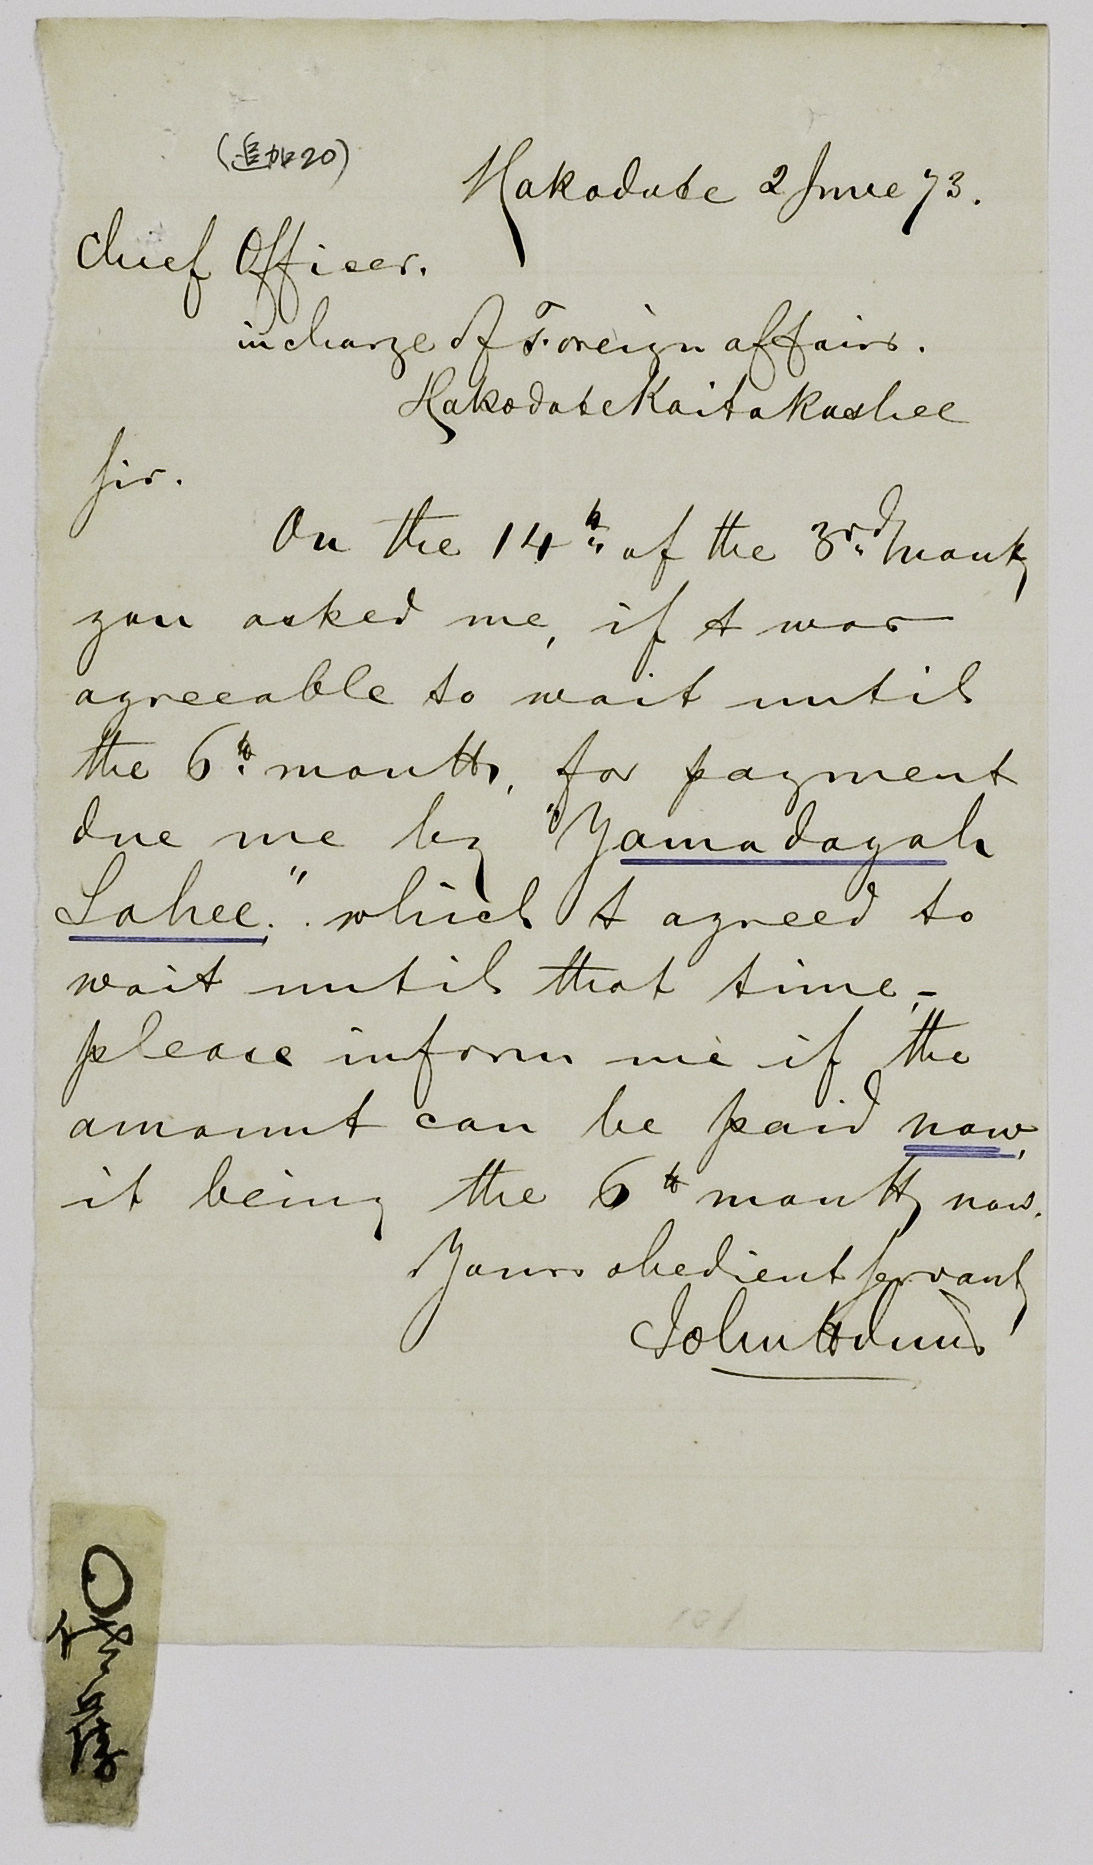 (追加20)
Hakodate 2 June 73.
Chief Officer.
in charge of Foreign affairs.
Hakodate Kaitakushee
Sir.
On the 14th of the 3rd month
you asked me, if I was
agreeable to wait until
the 6th month, for payment
due me by "Yamadayah
Sahee." which I agreed to
wait until that time,-
please inform me if the
amount can be paid now,
it being the 6th month now.
Yours obedient Servant
John